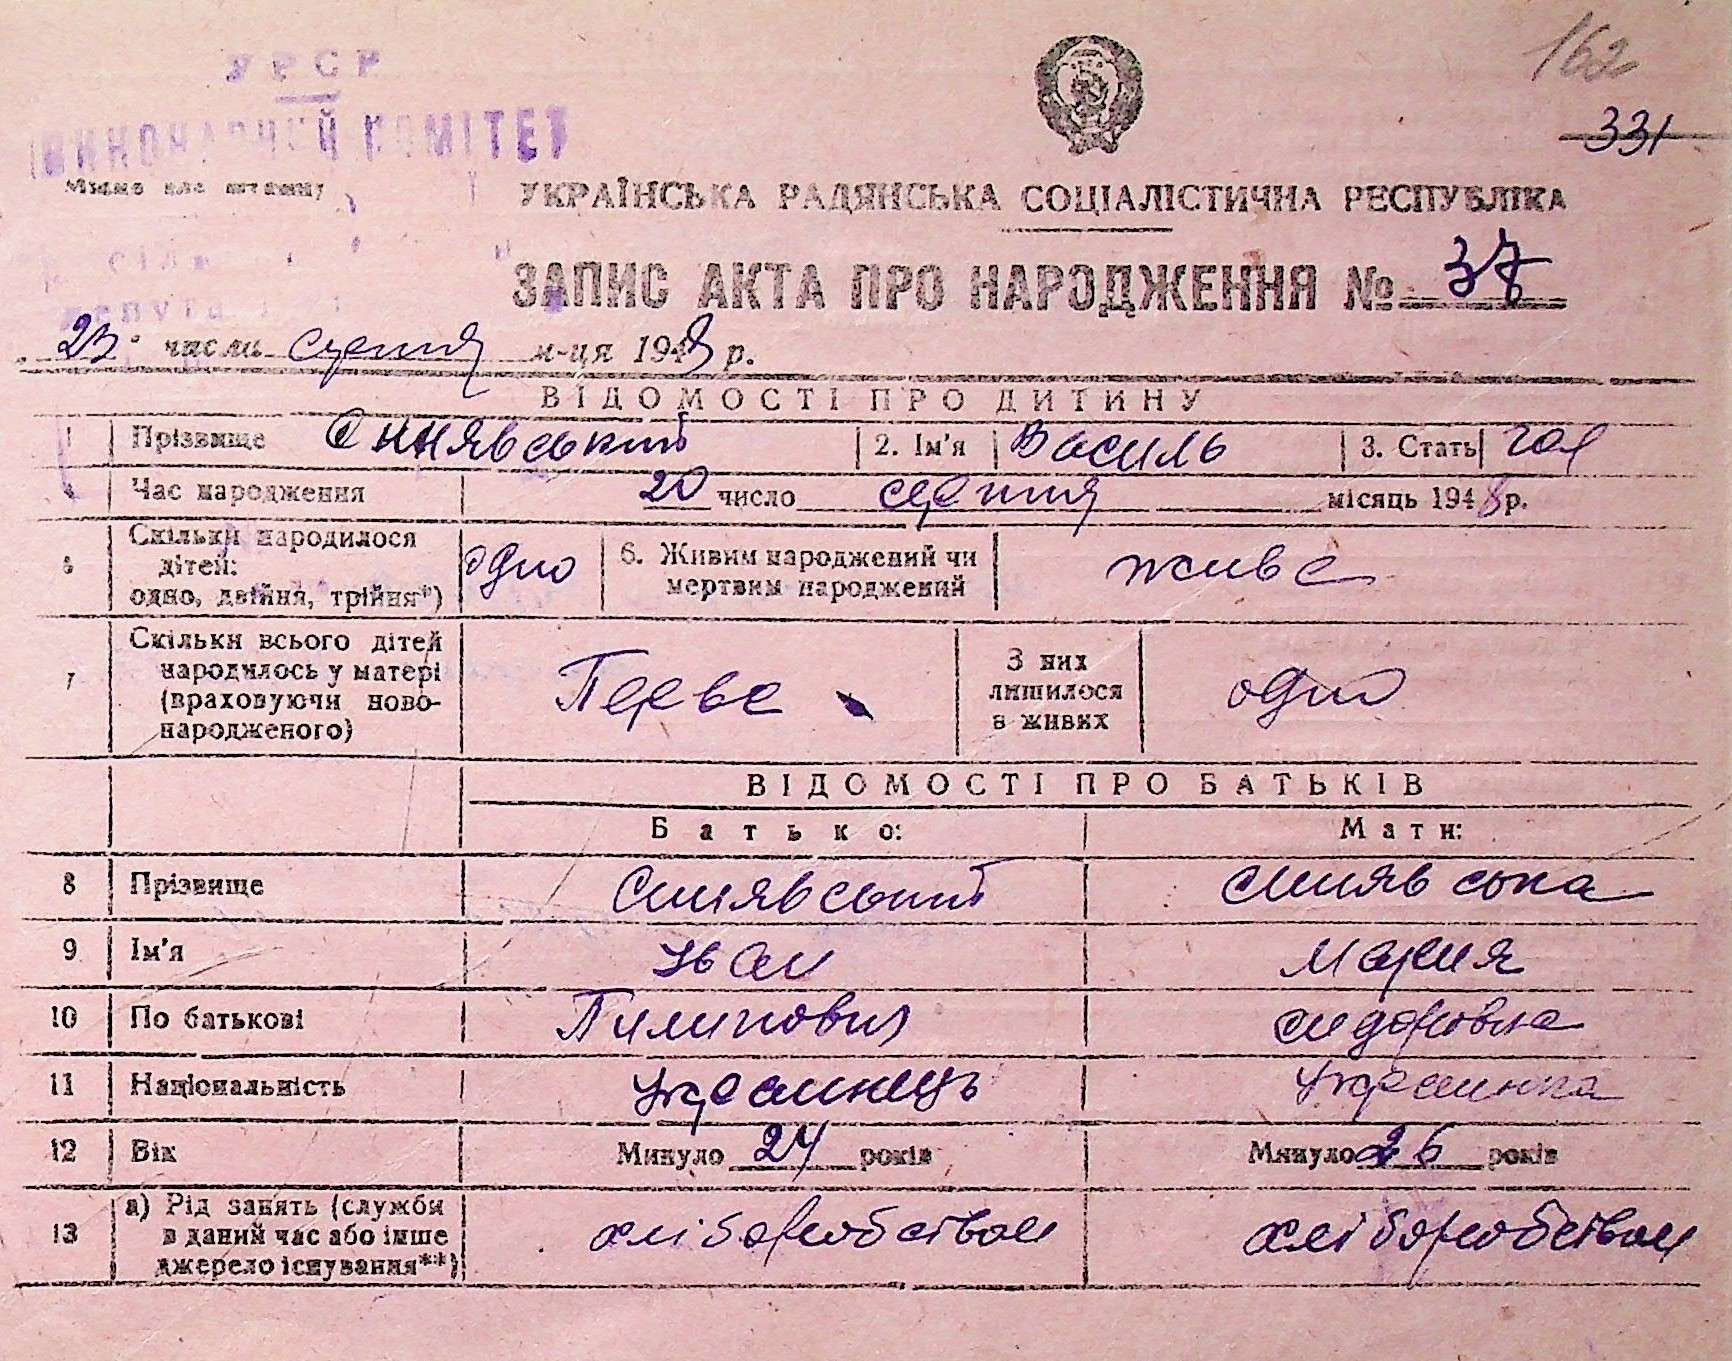 162
УРСР
331
ВИКОНАВЧИЙ КОМІТЕТ
УКРАЇНСЬКА РАДЯНСЬКА СОЦІАЛІСТИЧНА РЕСПУБЛІКА
ЗАПИС АКТА ПРО НАРОДЖЕННЯ № 37
23 числа серпня м-ця 1948 р.
ВІДОМОСТІ ПРО ДИТИНУ
1 Прізвище Синявський 2. Ім'я Василь 3. Стать чол
4 Час народження 20 число серпня місяць 1948 р.
5 Скільки народилося дітей: одно, двійня, трійня*) одно 6. Живим народжений чи мертвим народжений живе
7 Скільки всього дітей народилось у матері (враховуючи ново-народженого) Перве З них лишилося в живих одно
ВІДОМОСТІ ПРО БАТЬКІВ
Батько: Мати:
8 Прізвище Синявський Синявська
9 Ім'я Іван Мария
10 По батькові Пилипович Сидоровна
11 Національність Українець Українка
12 Вік Минуло 24 років Минуло 26 років
13 а) Рід занять (служби в даний час або інше джерело існування**) хліборобством хліборобством